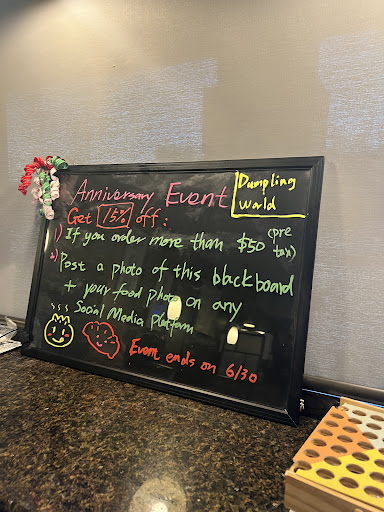 Anniversary Event
Dumpling
World
Get 15% off:
1) If you order more than $50 (pre tax)
2) Post a photo of this blackboard
+ your food photo on any
Social Media Platform
Event ends on 6/30